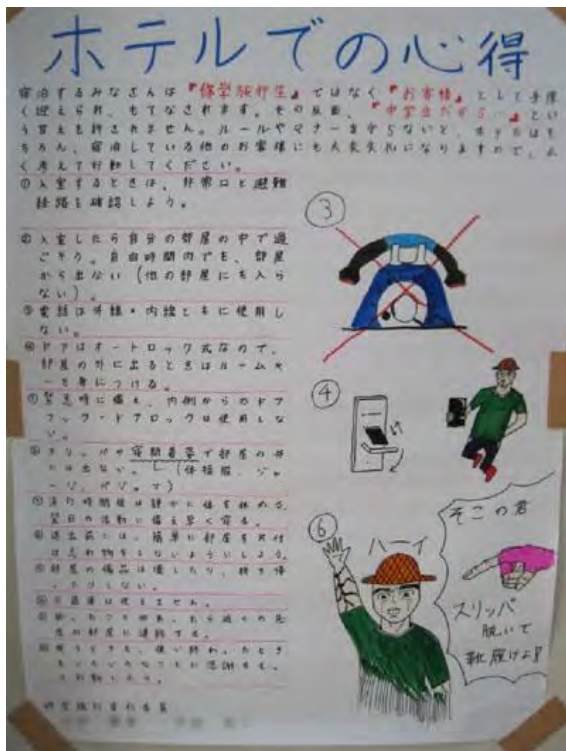 ホテルでの心得
宿泊するみなさんは『修学旅行生』ではなく『お客様』として手厚
く迎えられ、もてなされます。その反面、『中学生だから…』とい
う甘えも許されません。ルールやマナーを守らないと、ホテルはも
ちろん、宿泊している他のお客様にも大変失礼になりますので、よ
く考えて行動してください。
①入室するときは、非常口と避難
経路を確認しよう。
②入室したら自分の部屋の中で過
ごそう。自由時間内でも、部屋
から出ない(他の部屋にも入ら
ない)。
③電話は外線・内線ともに使用し
ない。
④ドアはオートロック式なので、
部屋の外に出るときはルームキ
ーを身につける。
⑤緊急時に備え、内側からのドア
フック・ドアロックは使用しな
い。
⑥スリッパや寝間着等で部屋の外
には出ない。(体操服、ジャ
ージ、パジャマ)
⑦消灯時間後は静かに体を休める。
翌日の活動に備え早く寝る。
⑧退出前には、簡単に部屋を片付
け忘れ物をしないようにしよう。
⑨部屋の備品は壊したり、持ち帰
ったりしない。
⑩冷蔵庫は使えません。
③
④
⑥
ハーイ
そこの君
スリッパ
脱いで
靴履けよ!!